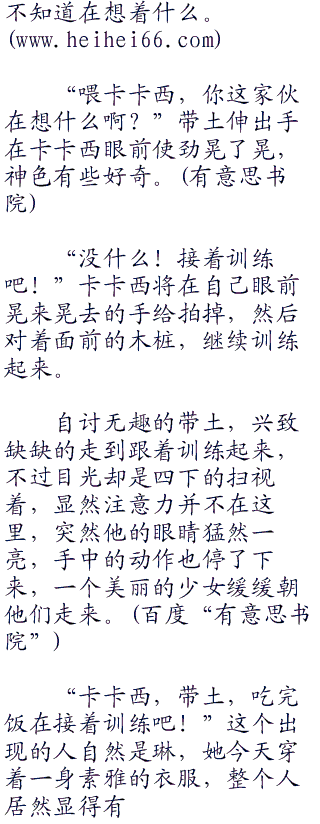 不知道在想着什么。
(www.heihei66.com)
“喂卡卡西，你这家伙
在想什么啊？”带土伸出手
在卡卡西眼前使劲晃了晃，
神色有些好奇。(有意思书
院)
“没什么！接着训练
吧！”卡卡西将在自己眼前
晃来晃去的手给拍掉，然后
对着面前的木桩，继续训练
起来。
自讨无趣的带土，兴致
缺缺的走到跟着训练起来，
不过目光却是四下的扫视
着，显然注意力并不在这
里，突然他的眼睛猛然一
亮，手中的动作也停了下
来，一个美丽的少女缓缓朝
他们走来。(百度“有意思书
院”)
“卡卡西，带土，吃完
饭在接着训练吧！”这个出
现的人自然是琳，她今天穿
着一身素雅的衣服，整个人
居然显得有